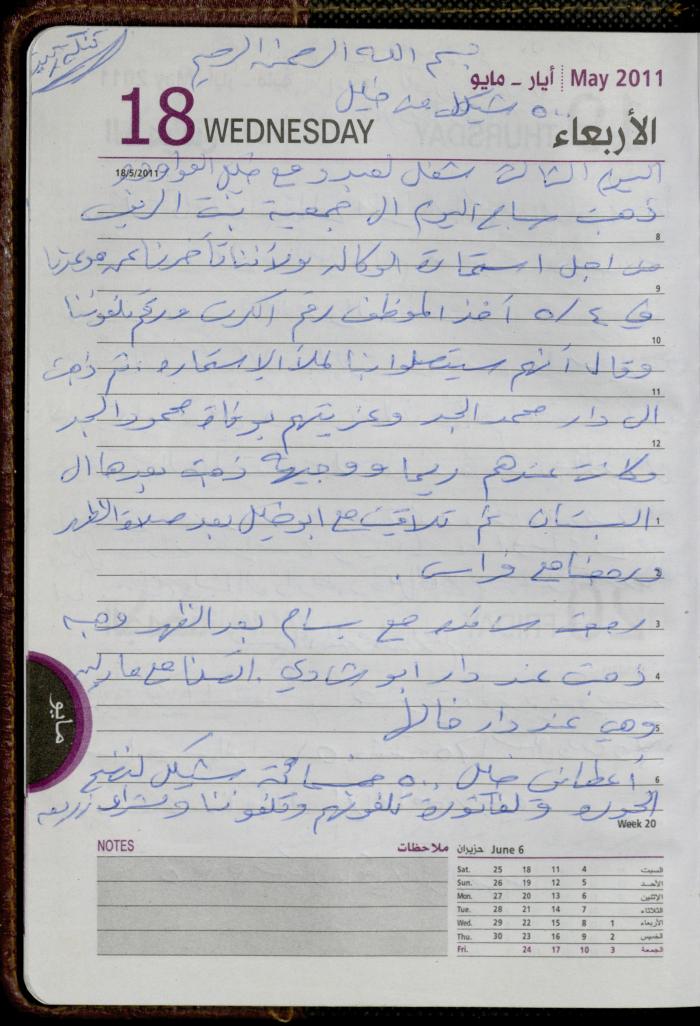 بسم الله الرحمن الرحيم
أيار - مايو May 2011
٥٠٠ شيكل من خليل
18 WEDNESDAY الأربعاء
18/5/2011
اليوم الثالث شغل لعبد و مع خليل
ذهبت صباح اليوم الى جمعية بنت الريف
8
من اجل استمارة الوكالة ولأننا تأخرنا عن موعدنا
9
في ٥/٤ أخذ الموظف رقم الكرت ورقم تلفوننا
10
وقال أنهم سيتصلوا بنا لملأ الاستماره . ثم ذهبت
11
الى دار محمد الجد وعزيتهم بوفاة محمود الجد
12
وكانت عندهم ريما ووجيهه ذهبت بعدها الى
البستان ثم تلاقيت مع ابو خليل بعد صلاة الظهر
1
وروحنا مع فراس .
رجعت مع بسام بعد الظهر وهبه
3
ذهبت عند دار ابو شادي . اتصلنا مع مارلين
4
وهي عند دار خالد
5
أعطاني خليل ٥٠٠ خمسمائة شيكل لنضح
6
الجوره و لفاتورة تلفونهم وتلفوننا وشراء زريعه
Week 20
مايو
NOTES ملاحظات
June 6 حزيران
Sat. 25 18 11 4 السبت
Sun. 26 19 12 5 الأحد
Mon. 27 20 13 6 الإثنين
Tue. 28 21 14 7 الثلاثاء
Wed. 29 22 15 8 1 الأربعاء
Thu. 30 23 16 9 2 الخميس
Fri. 24 17 10 3 الجمعة